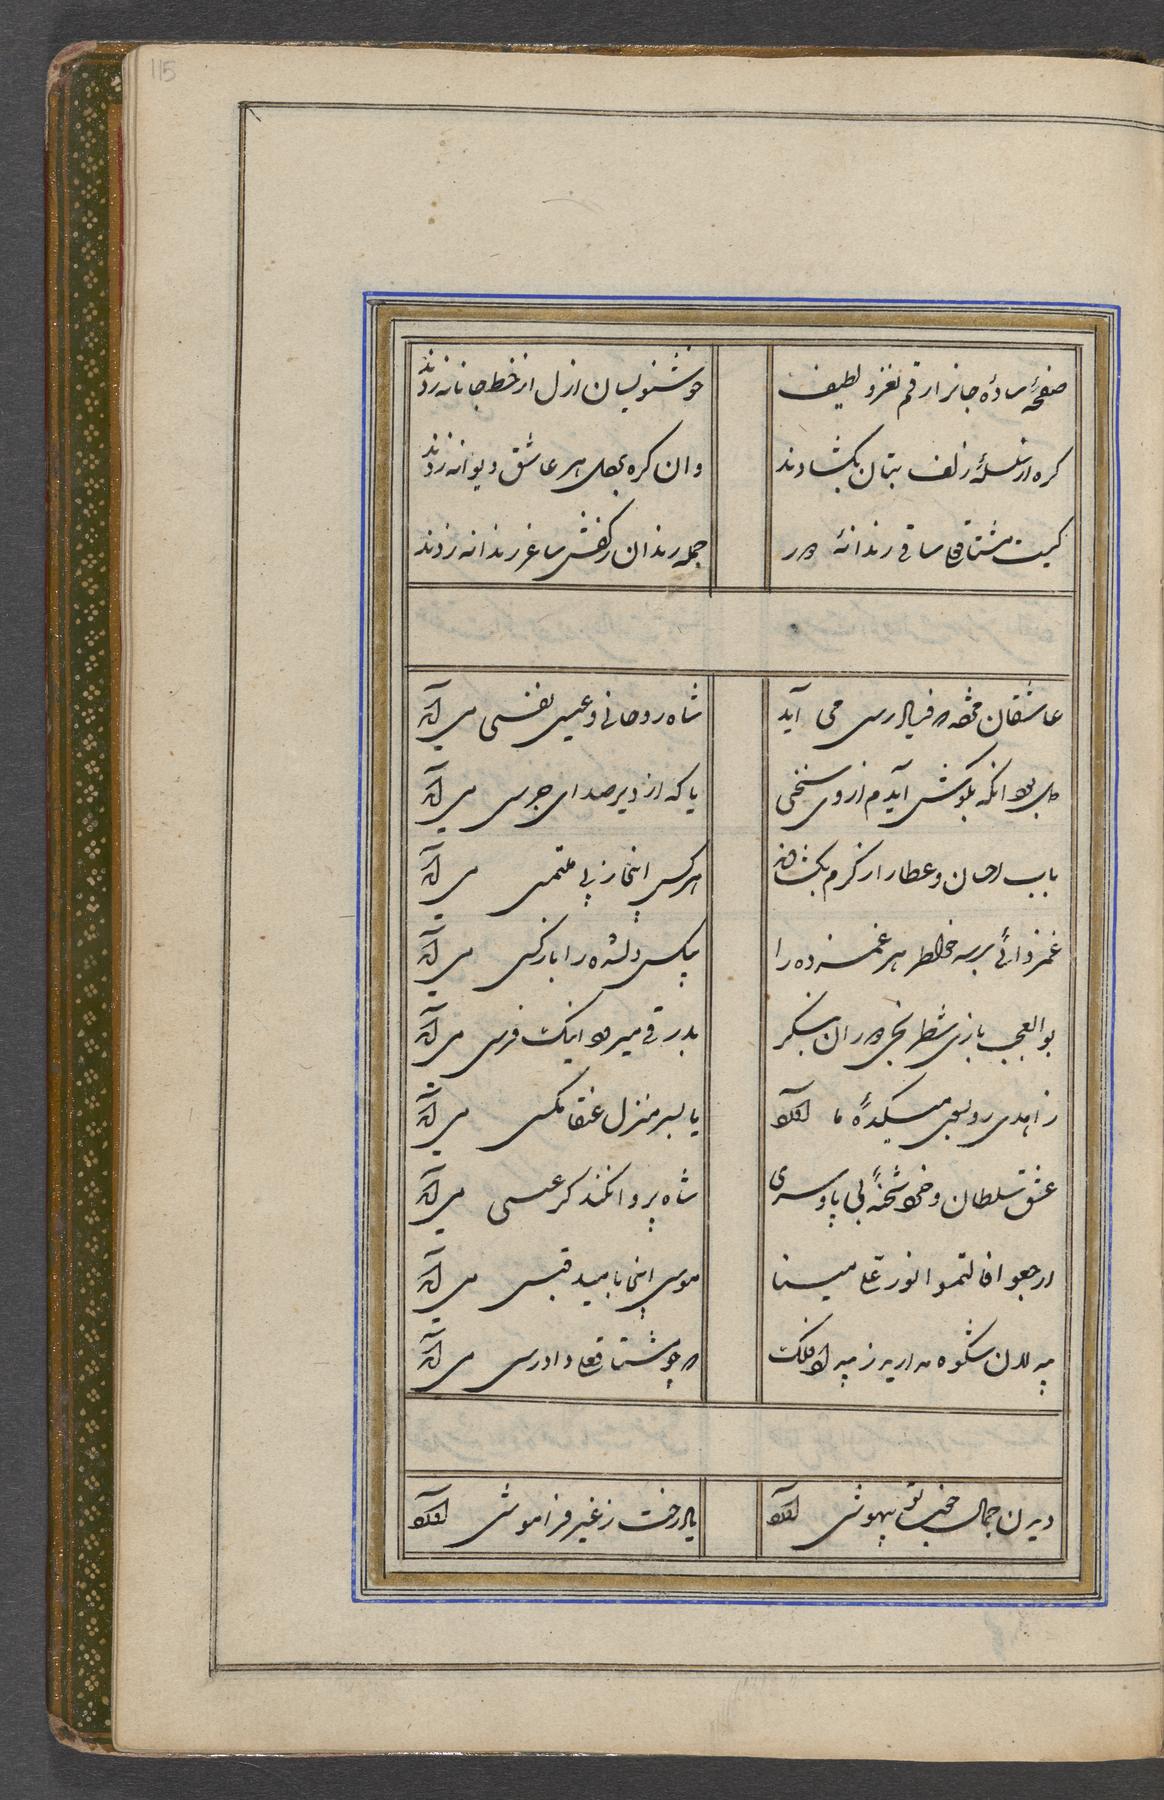 115
صفحهٔ سادهٔ جانرا رقم نغز و لطیف
خوشنویسان ازل از خط جانانه زدند
کره از سلسلهٔ زلف بتان بکشادند
وان کره بر هر عاشق دیوانه زدند
کیست مشتاقی ساقی رندانهٔ در
جمله رندان ز کفش ساغر رندانه زدند
عاشقان مژده که فریادرسی می آید
شاه روحانی و عیسی نفسی می آید
انکه بکوش آیدم از وی سخنی
یا که از دیر صدای جرسی می آید
باب احسان و عطا را ز کرم بکشاده
هرکس اینجا ز پی ملتمسی می آید
غمزدائی بر خاطر هر غمزده را
بیکس دلشده را باز کسی می آید
بوالعجب بازی شطرنجی در ان بنکر
بدرقی میرود اینک فرسی می آید
زاهدی رو بسوی میکدهٔ ما آورد
یا بسر منزل عنقا مکسی می آید
عشق سلطان و خرد شحنهٔ بی پا و سری
شاه پروا نکند کر عسسی می آید
ارجعوا فالتمسوا نور علی سینا
موسی اینجا بامید قبسی می آید
شکوه مدارید ز فلک
که چو مشتاقعلی دادرسی می آید
دیدن جمال تو بیهوشی آورد
یاد رخت ز غیر فراموشی آورد